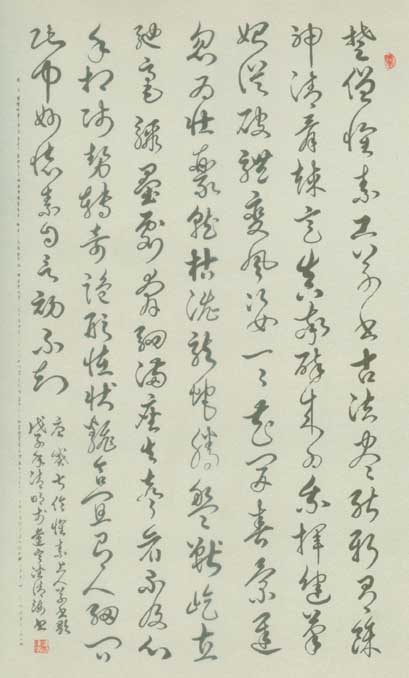 楚僧懷素工草書古法盡能新有餘
神清骨竦意真率醉來為我揮健筆
始從破體變風姿一一花開春景遲
忽為壯麗就枯澀龍蛇騰盤獸屹立
馳毫驟墨劇奔駟滿座失聲看不及心
手相師勢轉奇詭形怪狀翻合宜有人細問
此中妙懷素自言初不知
唐戴叔倫懷素上人草書歌
戊子年清明書